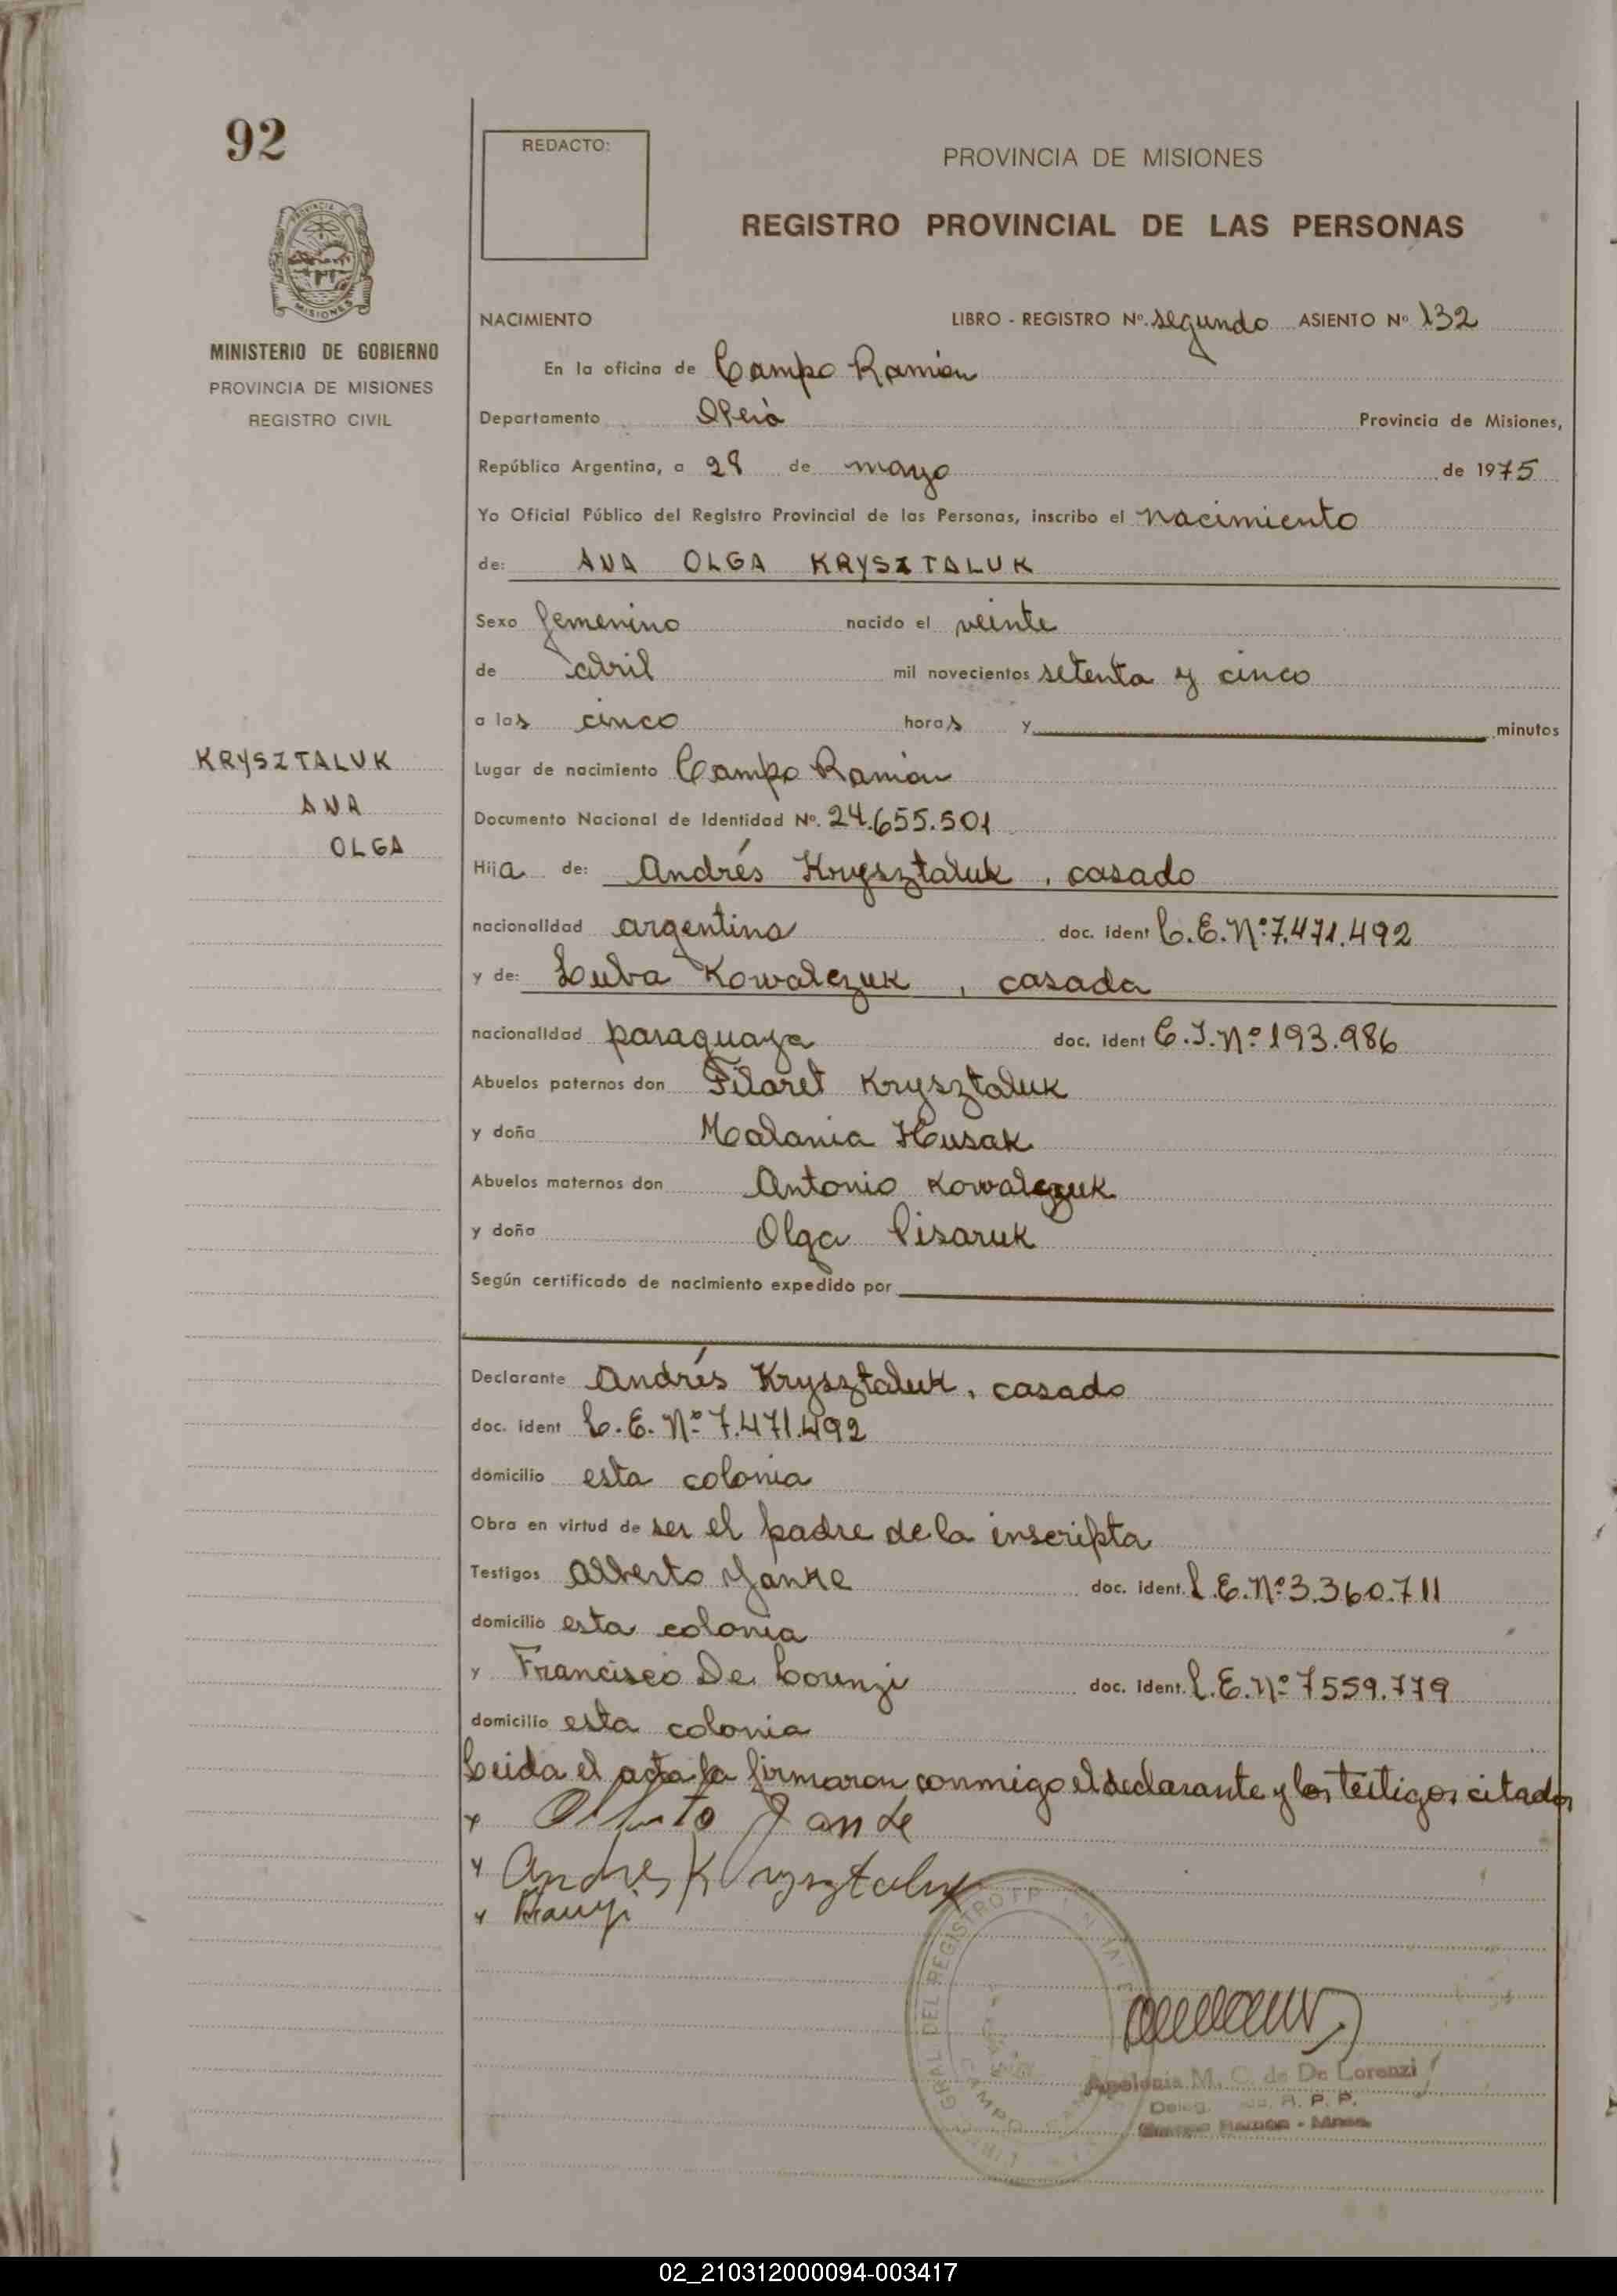 92
REDACTO:
PROVINCIA DE MISIONES
REGISTRO PROVINCIAL DE LAS PERSONAS
PROVINCIA DE
MISIONES
MINISTERIO DE GOBIERNO
PROVINCIA DE MISIONES
REGISTRO CIVIL
NACIMIENTO LIBRO - REGISTRO Nº. segundo ASIENTO Nº 132
En la oficina de Campo Ramón
Departamento Oberá Provincia de Misiones,
República Argentina, a 28 de mayo de 1975
Yo Oficial Público del Registro Provincial de las Personas, inscribo el nacimiento
de: ANA OLGA KRYSZTALUK
Sexo femenino nacido el veinte
de abril mil novecientos setenta y cinco
a las cinco horas y minutos
KRYSZTALUK
ANA
OLGA
Lugar de nacimiento Campo Ramón
Documento Nacional de Identidad Nº. 24.655.501
Hija de: Andrés Krysztaluk, casado
nacionalidad argentina doc. ident L.E. Nº 7.471.492
y de: Luba Kowalczuk, casada
nacionalidad paraguaya doc. ident C.I. Nº 193.986
Abuelos paternos don Filaret Krysztaluk
y doña Malania Husak
Abuelos maternos don Antonio Kowalczuk
y doña Olga Pisaruk
Según certificado de nacimiento expedido por
Declarante Andrés Krysztaluk, casado
doc. ident L.E. Nº 7.471.492
domicilio esta colonia
Obra en virtud de ser el padre de la inscripta
Testigos Alberto Yanke doc. ident. L.E. Nº 3.360.711
domicilio esta colonia
y Francisco De Lorenzi doc. ident. L.E. Nº 7559.779
domicilio esta colonia
Leida el acta la firmaron conmigo el declarante y los testigos citados
Alberto Janke
Andres Krysztaluk
GRAL DEL REGISTRO
CAMPO
Apolonia M. C. de De Lorenzi
Deleg. R. P. P.
Campo Ramón - Mnes.
02_210312000094-003417